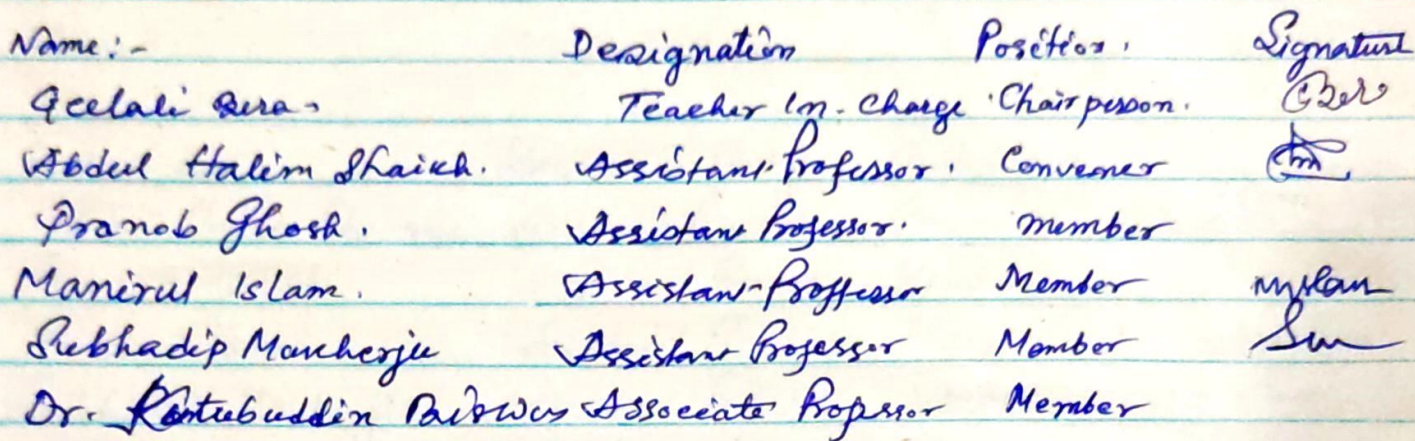 Name:- Designation Position. Signature
Geetali Bera. Teacher In-Charge Chairperson. Bera
Abdul Halim Shaikh. Assistant Professor. Convener
Pranab Ghosh. Assistant Professor. Member
Manirul Islam. Assistant Proffessor Member mislam
Subhadip Moukherjee Assistant Professor Member
Dr. Kutubuddin Biswas Associate Professor Member